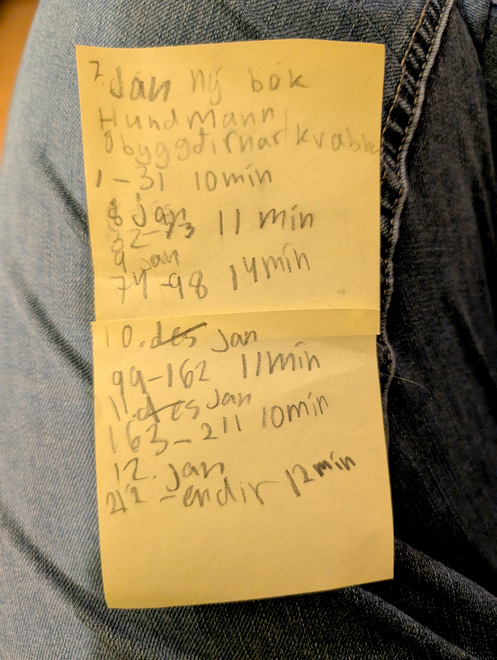 7. Jan ný bók
Hundmann
Óbyggðirnar kvabba
1-31 10 mín
8 jan
32-73 11 mín
9 jan
74-98 14 mín
10. des jan
99-162 11 mín
11. des Jan
163-211 10 mín
12. jan
212 - endir 12 mín